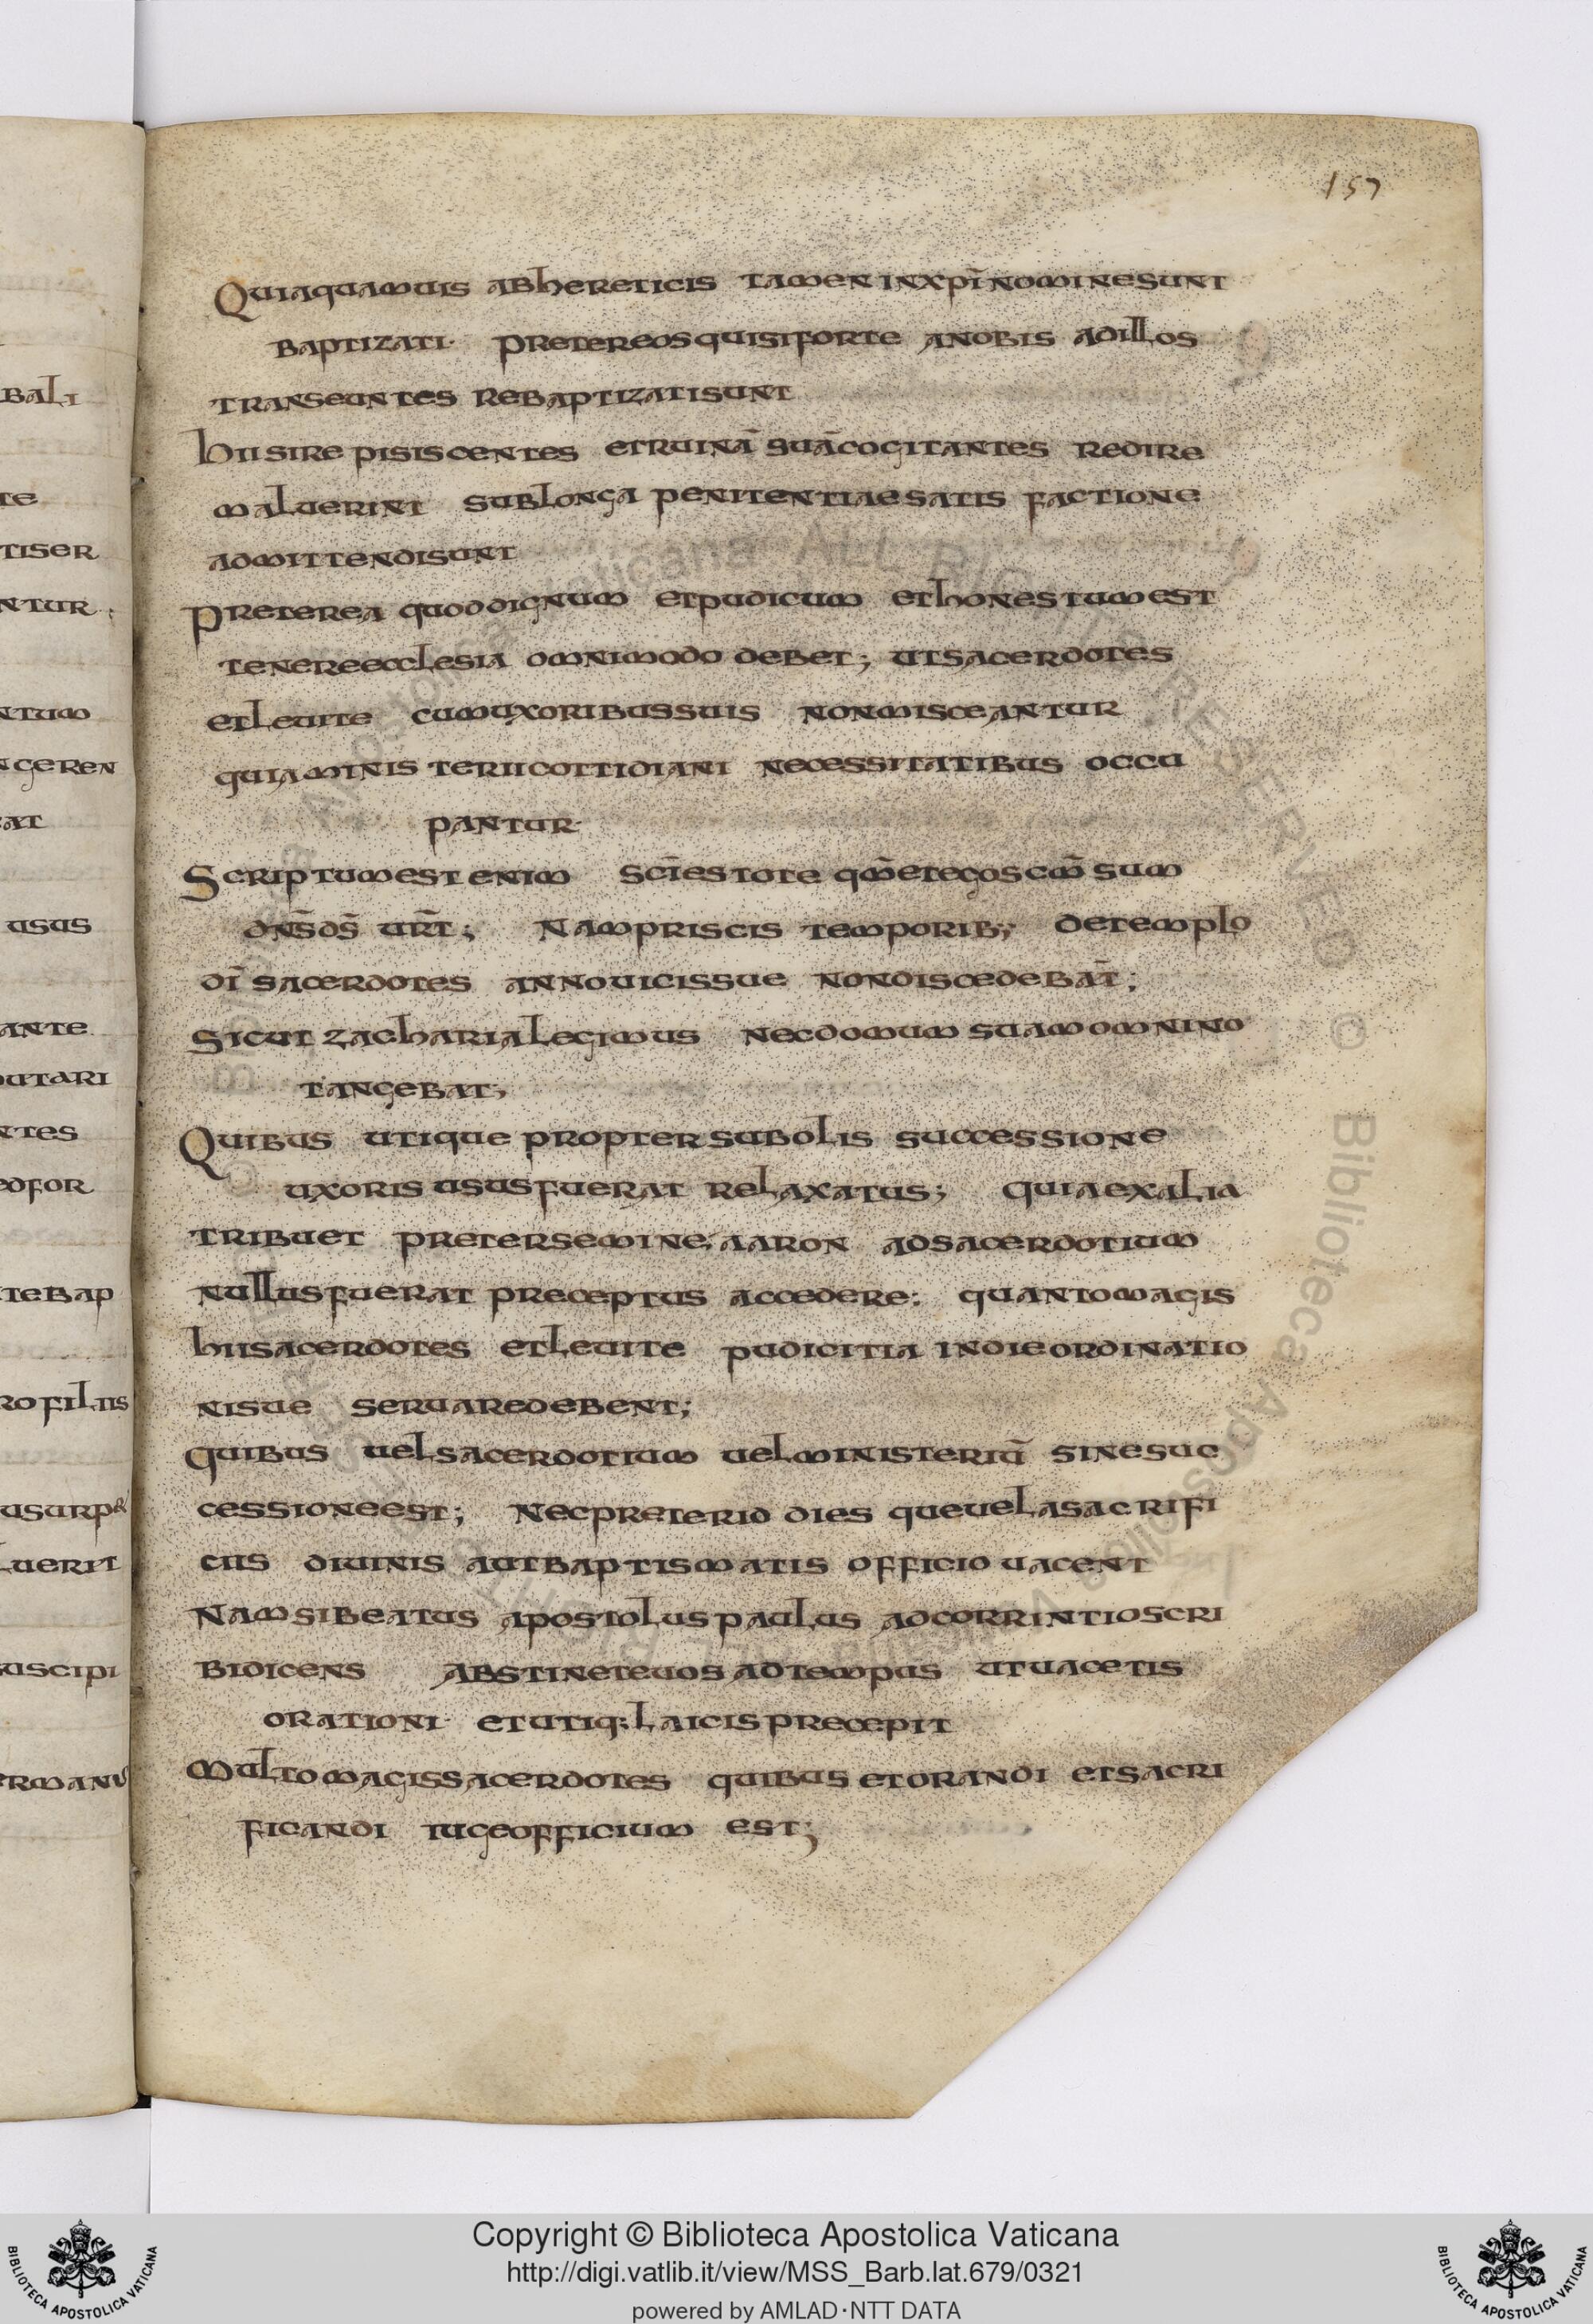 157
Quiaquamuis abhereticis tamen inxp̄inominesunt
baptizati· pretereosquisiforte anobis adillos
transeuntes rebaptizatisunt
hiisire pisiscentes etruinā suācogitantes redire
maluerint sublonga penitentiaesatis factione
admittendisunt
Preterea quoddignum etpudicum ethonestumest
tenereecclesia omnimodo debet; utsacerdotes
etleuite cumuxoribussuis nonmisceantur
quiaministeriicottidiani necessitatibus occu
pantur·
Scriptumest enim sc̄iestote qm̄etegoscm̄ sum
dn̄sds̄ ur̄t; Nampriscis temporib; detemplo
dī sacerdotes annouicissue nondiscedebat̄;
Sicut zacharialegimus necdomum suamomnino
tangebat;
Quibus utique proptersubolis successione
uxoris ususfuerat relaxatus; quiaexalia
tribuet pretersemine aaron adsacerdotium
nullusfuerat preceptus accedere; quantomagis
hiisacerdotes etleuite pudicitia indieordinatio
nisue seruaredebent;
quibus uelsacerdotium uelministeriū sinesuc
cessioneest; Necpreterid dies queuelasacrifi
ciis diuinis autbaptismatis officio uacent
Namsibeatus apostoluspaulus adcorrintioscri
bidicens abstineteuos adtempus utuacetis
orationi· etutiq; laicisprecepit
multomagissacerdotes quibus etorandi etsacri
ficandi iugeofficium est;
bali
te
tiser
ntur;
ntum
ngeren
at
usus
ante
outari
ntes
edfor
tebap
rofiliis
usurp&
luerit
uscipi
ermanu
Copyright © Biblioteca Apostolica Vaticana
http://digi.vatlib.it/view/MSS_Barb.lat.679/0321
powered by AMLAD·NTT DATA
BIBLIOTECA APOSTOLICA VATICANA
BIBLIOTECA APOSTOLICA VATICANA